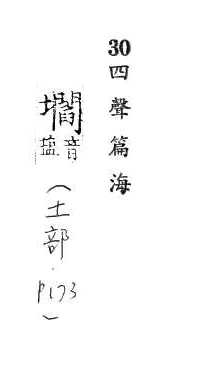 30 四聲篇海
音
(土部.P173)